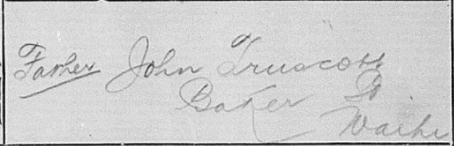 Father John Truscott
Baker St.
Waihi